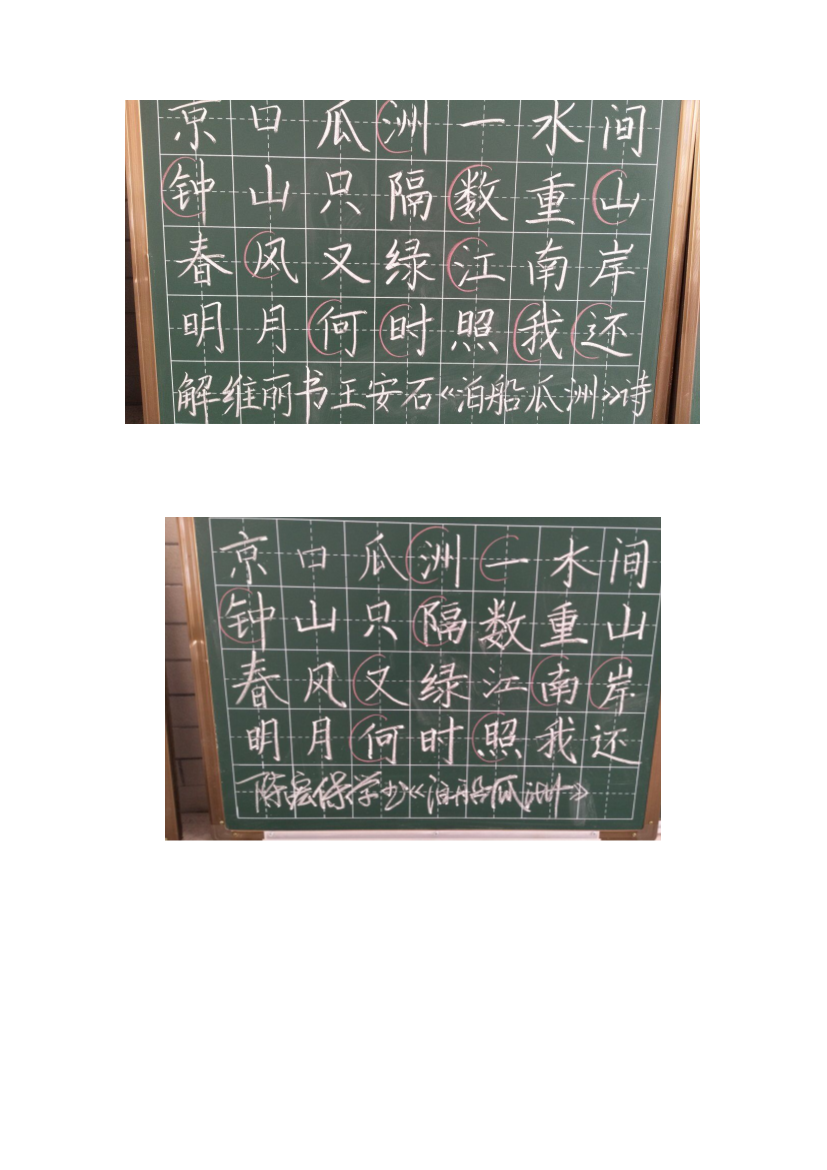 京口瓜洲一水间
钟山只隔数重山
春风又绿江南岸
明月何时照我还
解维丽书王安石《泊船瓜洲》诗
京口瓜洲一水间
钟山只隔数重山
春风又绿江南岸
明月何时照我还
陈保学《泊船瓜洲》